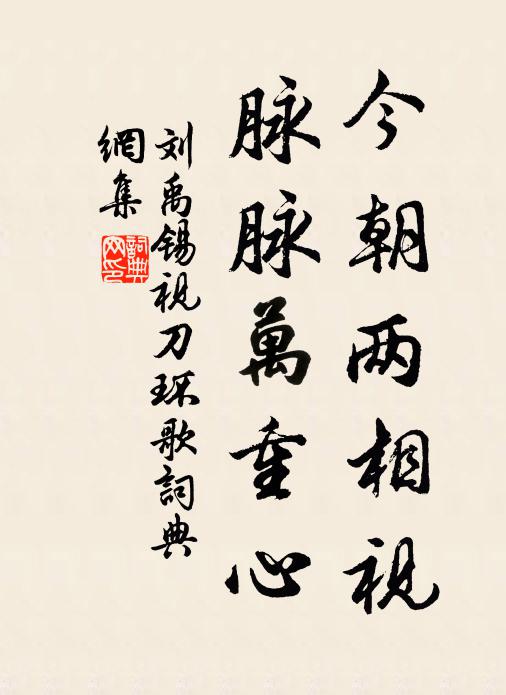 今朝两相視
脉脉萬重心
刘禹锡視刀环歌詞典
網集
詞典
网印